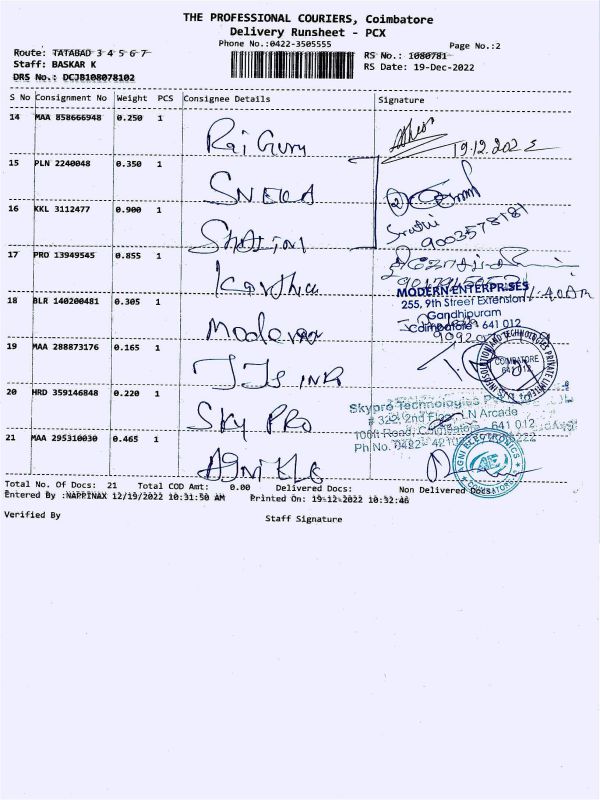 THE PROFESSIONAL COURIERS, Coimbatore
Delivery Runsheet - PCX
Phone No.:0422-3505555
Page No.:2
Route: TATABAD 3 4 5 6 7
RS No.: 1080781
Staff: BASKAR K
RS Date: 19-Dec-2022
DRS No.: DCJB108078102
S No Consignment No Weight PCS Consignee Details Signature
14 MAA 858666948 0.250 1 Raj Guru 19.12.2022
15 PLN 2240048 0.350 1 SNEKA
16 KKL 3112477 0.900 1 9003578181
17 PRO 13949545 0.855 1 Karthic
MODERN ENTERPRISES
255, 9th Street Extension
Gandhipuram
Coimbatore 641 012
18 BLR 140200481 0.305 1 Modern
19 MAA 288873176 0.165 1
COIMBATORE
641 012
20 HRD 359146848 0.220 1 Sky PRO
Skypro Technologies
# 322, 2nd Floor, LN Arcade
100ft Road, Coimbatore 641 012
Ph No. 0422
21 MAA 295310030 0.465 1 Agni Ele
AGNI ELECTRONICS
COIMBATORE
Total No. Of Docs: 21 Total COD Amt: 0.00 Delivered Docs: Non Delivered Docs:
Entered By :NAPPINAX 12/19/2022 10:31:50 AM Printed On: 19-12-2022 10:32:46
Verified By
Staff Signature